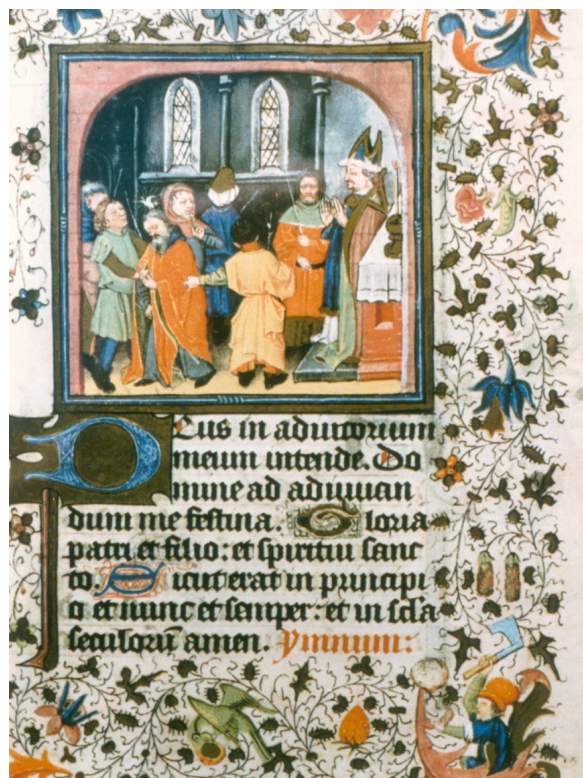 Deus in adiutorium
meum intende. Do
mine ad adiuuan
dum me festina. Gloria
patri et filio: et spiritui sanc
to. Sicut erat in principi
o et nunc et semper: et in scła
seculorū amen. Ymnum: